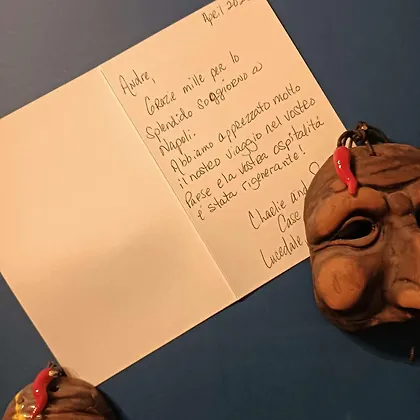 April 202
Andre,
Grazie mille per lo
splendido soggiorno a
Napoli.
Abbiamo apprezzato molto
il nostro viaggio nel vostro
Paese e la vostra ospitalitá
é stata rigenerante!
Charlie and
Case
Lucedale,